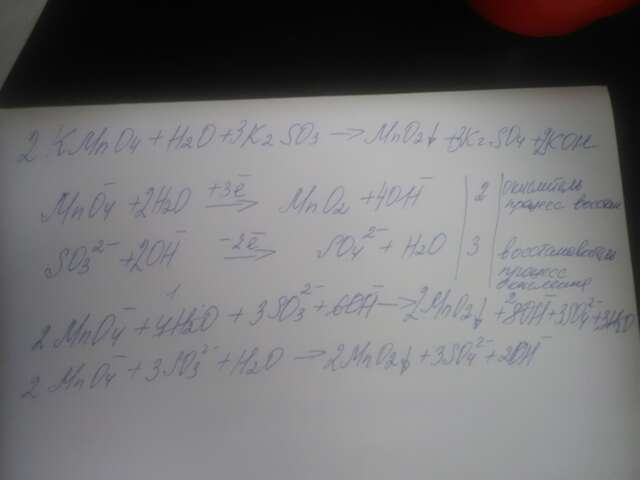 2 KMnO4 + H2O + 3K2SO3 → MnO2↓ + 3K2SO4 + 2KOH
MnO4⁻ + 2H2O +3ē → MnO2 + 4OH⁻ | 2 | окислитель
процесс восстан
SO3²⁻ + 2OH⁻ −2ē → SO4²⁻ + H2O | 3 | восстановитель
процесс
окисления
2MnO4⁻ + 4H2O + 3SO3²⁻ + 6OH⁻ → 2MnO2↓ + 8OH⁻ + 3SO4²⁻ + 3H2O
2MnO4⁻ + 3SO3²⁻ + H2O → 2MnO2↓ + 3SO4²⁻ + 2OH⁻